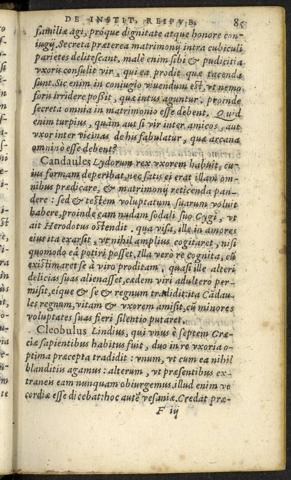 DE INSTIT. REIPVB. 85
familiæ agi, próque dignitate atque honore con-
iugij. Secreta præterea matrimonij intra cubiculi
parietes delitescant, malè enim sibi & pudicitiæ
vxoris consulit vir, qui ea prodit quæ facienda
sunt. Sic enim in coniugio viuendum est, vt nemo
foris irridere possit, quæ intus aguntur. proinde
secreta omnia in matrimonio esse debent. Quid
enim turpius, quàm aut si vir inter amicos, aut
vxor inter vicinas de his fabulatur, quæ arcana
omnino esse debent?
Candaules Lydorum rex vxorem habuit, cu-
ius formam deperibat. nec satis ei erat illam om-
nibus prædicare, & matrimonij reticenda pan-
dere : sed & testem voluptatum suarum voluit
habere, proinde eam nudam sodali suo Gygi, vt
ait Herodotus ostendit. qua visa, ille in amorem
eius ita exarsit, vt nihil amplius cogitaret, nisi
quomodo ea potiri posset. Illa verò re cognita, cùm
existimaret se à viro proditam, quasi ille alteri
delicias suas alienasset, eadem viri adulter per-
misit, eíque & se & regnum tradidit: ita Cadau-
les regnum, vitam & vxorem amisit, cũ minores
voluptates suas fieri silentio putaret.
Cleobulus Lindius, qui vnus è septem Græ-
ciæ sapientibus habitus fuit, duo in re vxoria o-
ptima præcepta tradidit : vnum, vt cum ea nihil
blanditiis agamus : alterum, vt præsentibus ex-
traneis eam nunquam obiurgemus. illud enim ve
cordiæ esse dicebat: hoc autẽ vesaniæ. Credat præ-
F iij